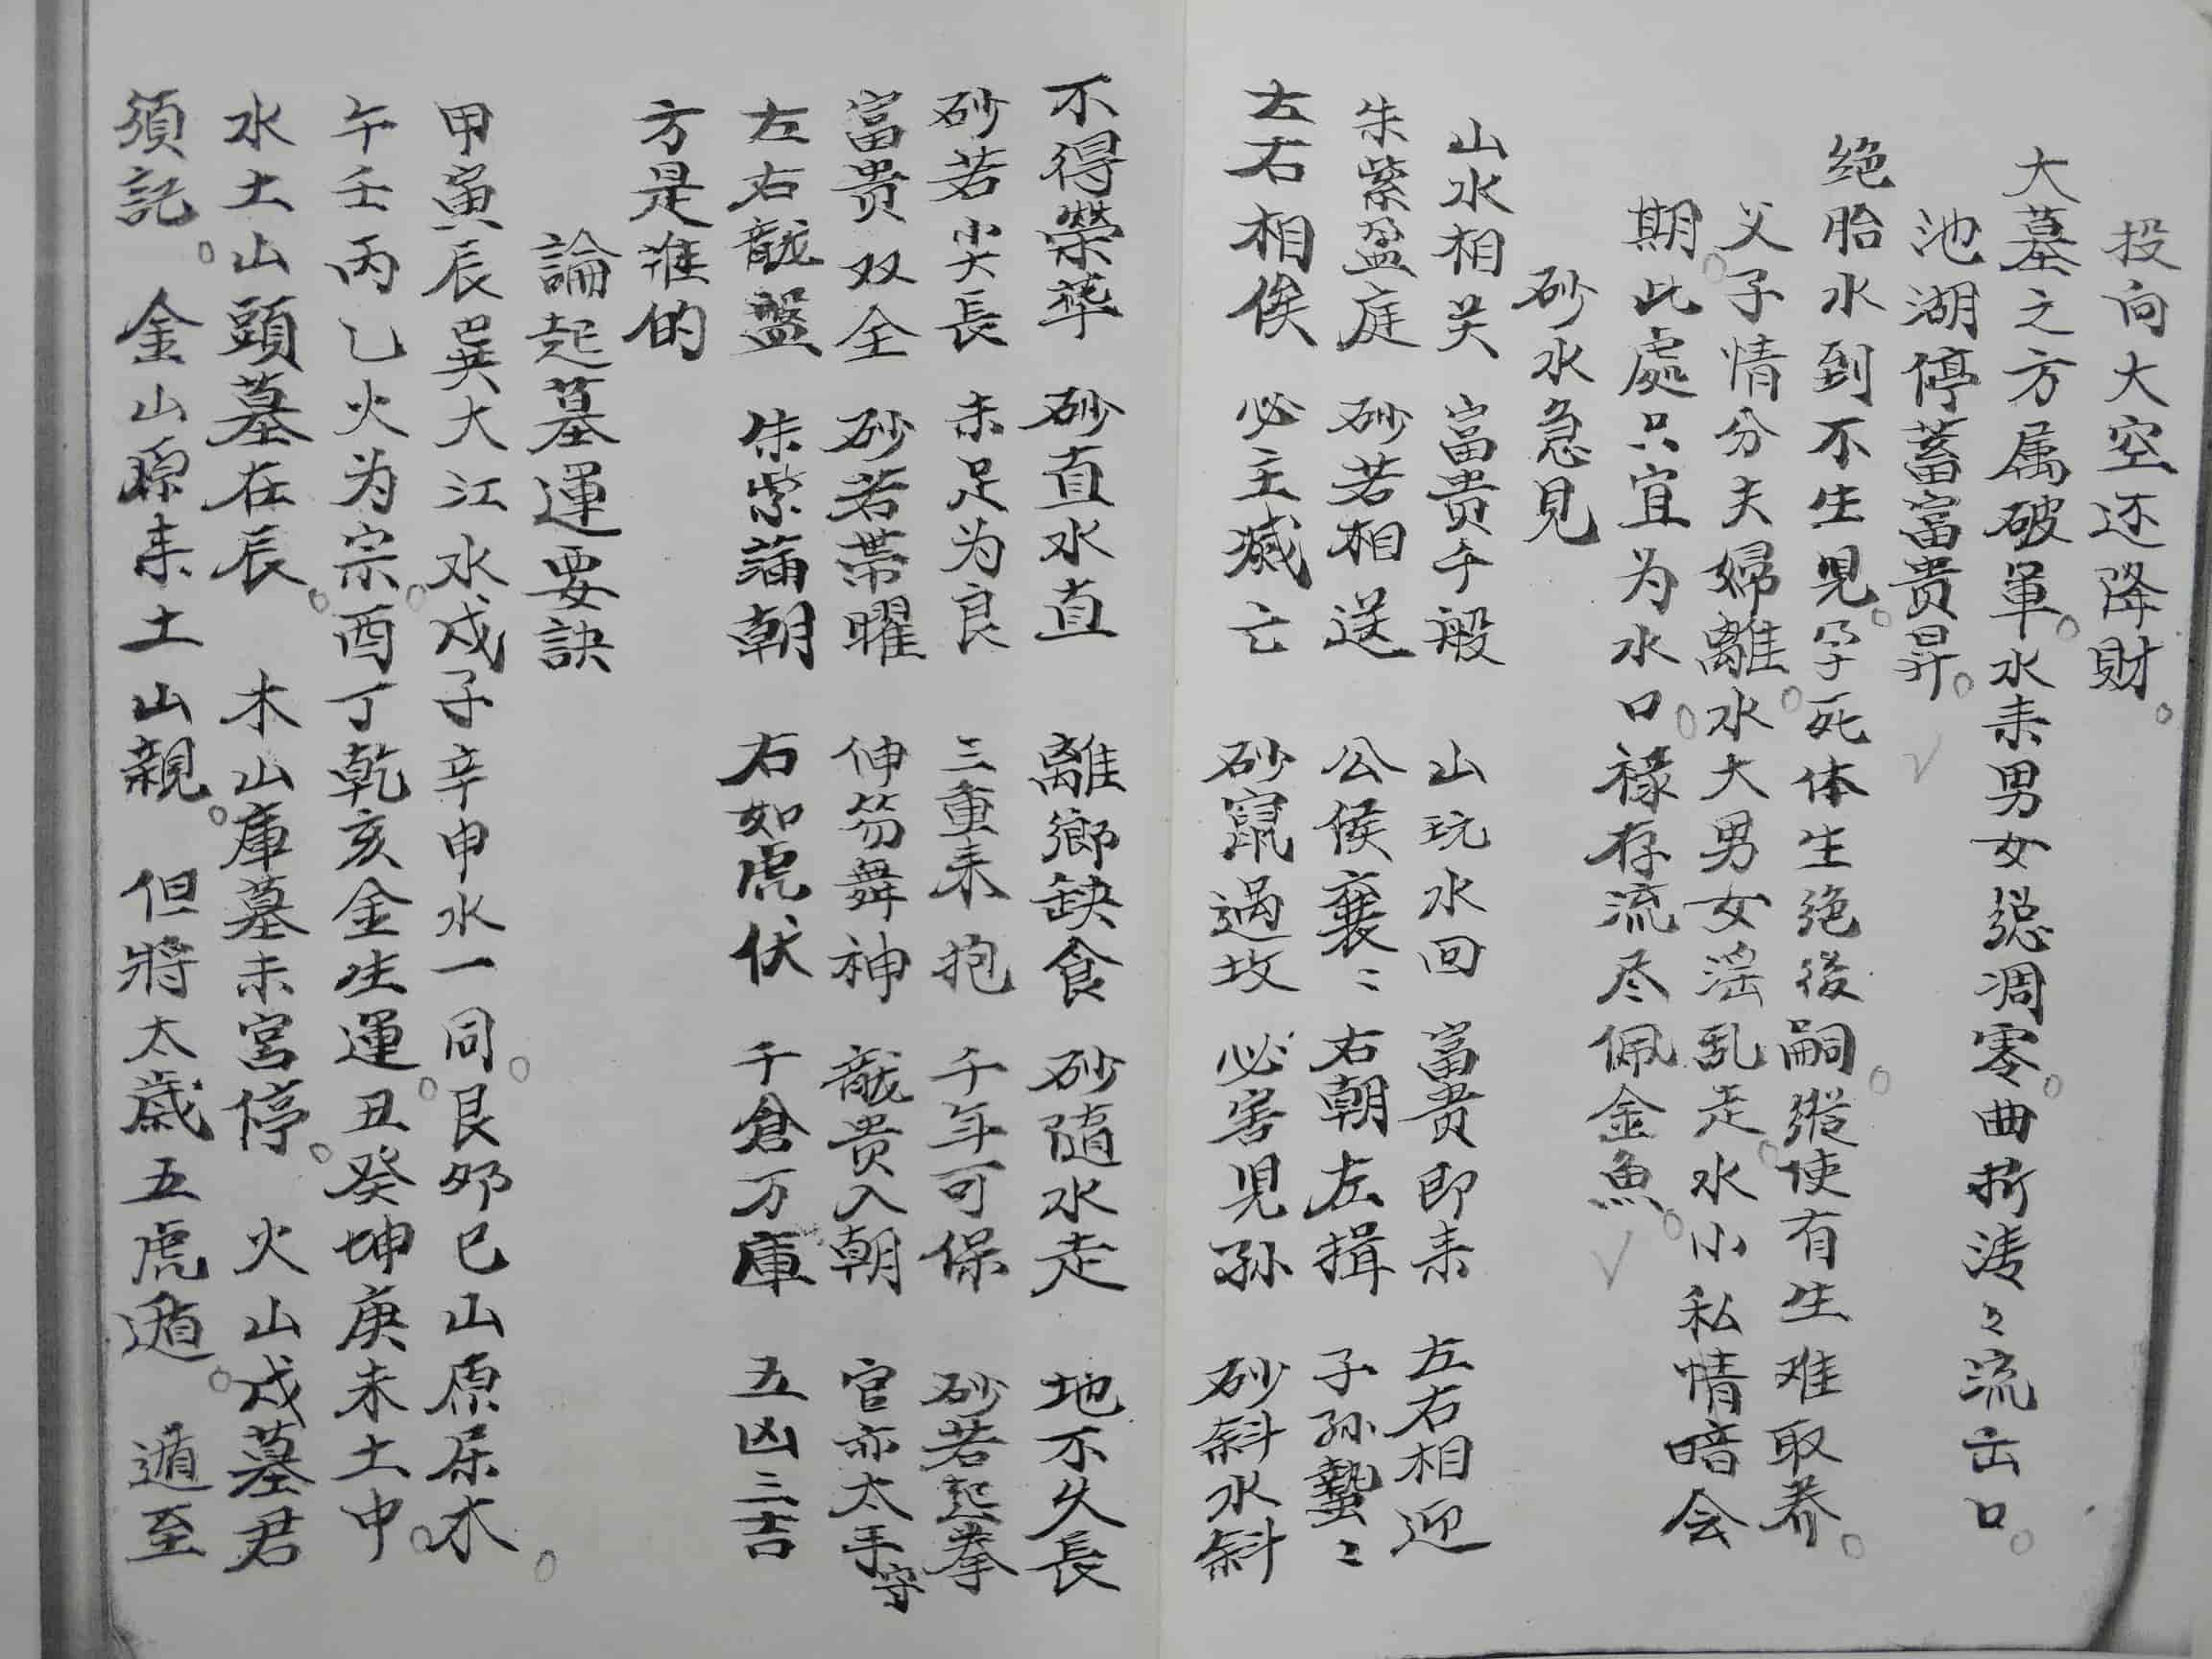 投向大空还降財。
大墓之方属破軍。水来男女总凋零。曲折涛々流出口。
池湖停蓄富贵昇。
绝胎水到不生児。孕死体生绝後嗣。縱使有生难取养。
父子情分夫婦離。水大男女淫乱走。水小私情暗会
期。此處只宜为水口。禄存流尽佩金魚。
砂水急見
山水相关 富贵千般 山玩水回 富贵即来 左右相迎
朱紫盈庭 砂若相送 公侯襄〻 右朝左揖 子孙蟄〻
左右相侯 必主滅亡 砂竄過坟 必害児孙 砂斜水斜
不得榮华 砂直水直 離鄉缺食 砂隨水走 地不久長
砂若尖長 未足为良 三重来抱 千年可保 砂若起拳
富贵双全 砂若带曜 伸笏舞神 龍贵入朝 官亦太守
左右龍盤 朱紫蒲朝 右如虎伏 千倉万庫 五凶三吉
方是准的
論起墓運要訣
甲寅辰巽大江水戌子辛申水一同。艮夘巳山原属木。
午壬丙乙火为宗。酉丁乾亥金生運。丑癸坤庚未土中。
水土山頭墓在辰。 木山庫墓未宮停。 火山戌墓君
須託。 金山原来土山親。 但將太歲五虎遁。 遁至